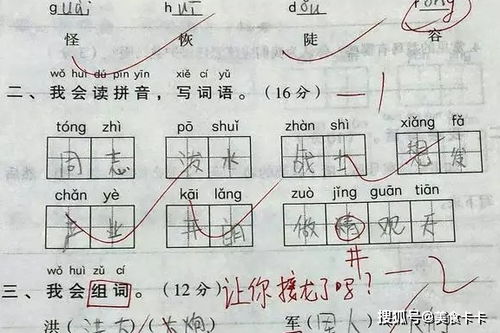 guài huī dǒu róng
怪 恢 陡 容
wǒ huì dú pīn yīn xiě cí yǔ
二、我会读拼音，写词语。（16分） —1
tóng zhì pō shuǐ zhàn shì xiǎng fǎ
同志 泼水 战士 想发
chǎn yè kāi lǎng zuò jǐng guān tiān
产业 开 做情观天
井
wǒ huì zǔ cí
三、我会组词。（12分） 让你接龙了吗？ —2
洪（洪大）（ 军（军人）
搜狐号@美食卡卡